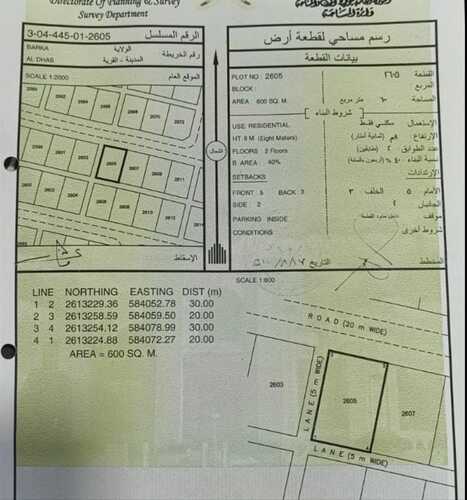 Directorate of Planning & Survey
Survey Department
3-04-445-01-2605 الرقم المسلسل
رسم مساحي لقطعة أرض
BARKA الولاية
AL DHAS المدينة - القرية رقم الخريطة
SCALE 1:2000 الموقع العام
بيانات القطعة
PLOT NO : 2605 القطعة ٢٦٠٥
BLOCK : المربع
AREA 600 SQ. M. المساحة ٦٠٠ متر مربع
شروط البناء
USE RESIDENTIAL الإستعمال سكني فقط
HT 8 M (Eight Meters) الإرتفاع ٨م (ثمانية أمتار)
FLOORS 2 Floors عدد الطوابق ٢ (طابقين)
B AREA 40% نسبة البناء ٤٠٪ (أربعون بالمائة)
SETBACKS الإرتدادات
FRONT 5 BACK 3 الأمام ٥ الخلف ٣
SIDE 2 الجانبان ٢
PARKING INSIDE موقف داخل حدود القطعة
CONDITIONS شروط أخرى
المخطط التاريخ
الشمال
2605
2607
2609
2611
الإسقاط
SCALE 1:600
LINE NORTHING EASTING DIST (m)
1 2 2613229.36 584052.78 30.00
2 3 2613258.59 584059.50 20.00
3 4 2613254.12 584078.99 30.00
4 1 2613224.88 584072.27 20.00
AREA = 600 SQ. M.
ROAD (20 m WIDE)
LANE (5 m WIDE)
2603
2605
2607
LANE (5 m WIDE)